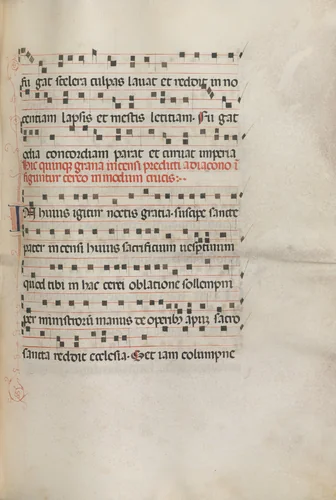 fu gat scelera culpas lauat et reddit in no
centiam lapsis et mestis letitiam. Fu gat
odia concordiam parat et curuat imperia
Hic quinque grana incensi predicti a diacono i
figuntur cereo in modum crucis:
IN huius igitur noctis gratia suscipe sancte
pater incensi huius sacrificium uespertinum
quod tibi in hac cerei oblatione sollempni
per ministrorū manus de operibꝫ apuꝫ sacro
sancta reddit ecclesia. Set iam columpne